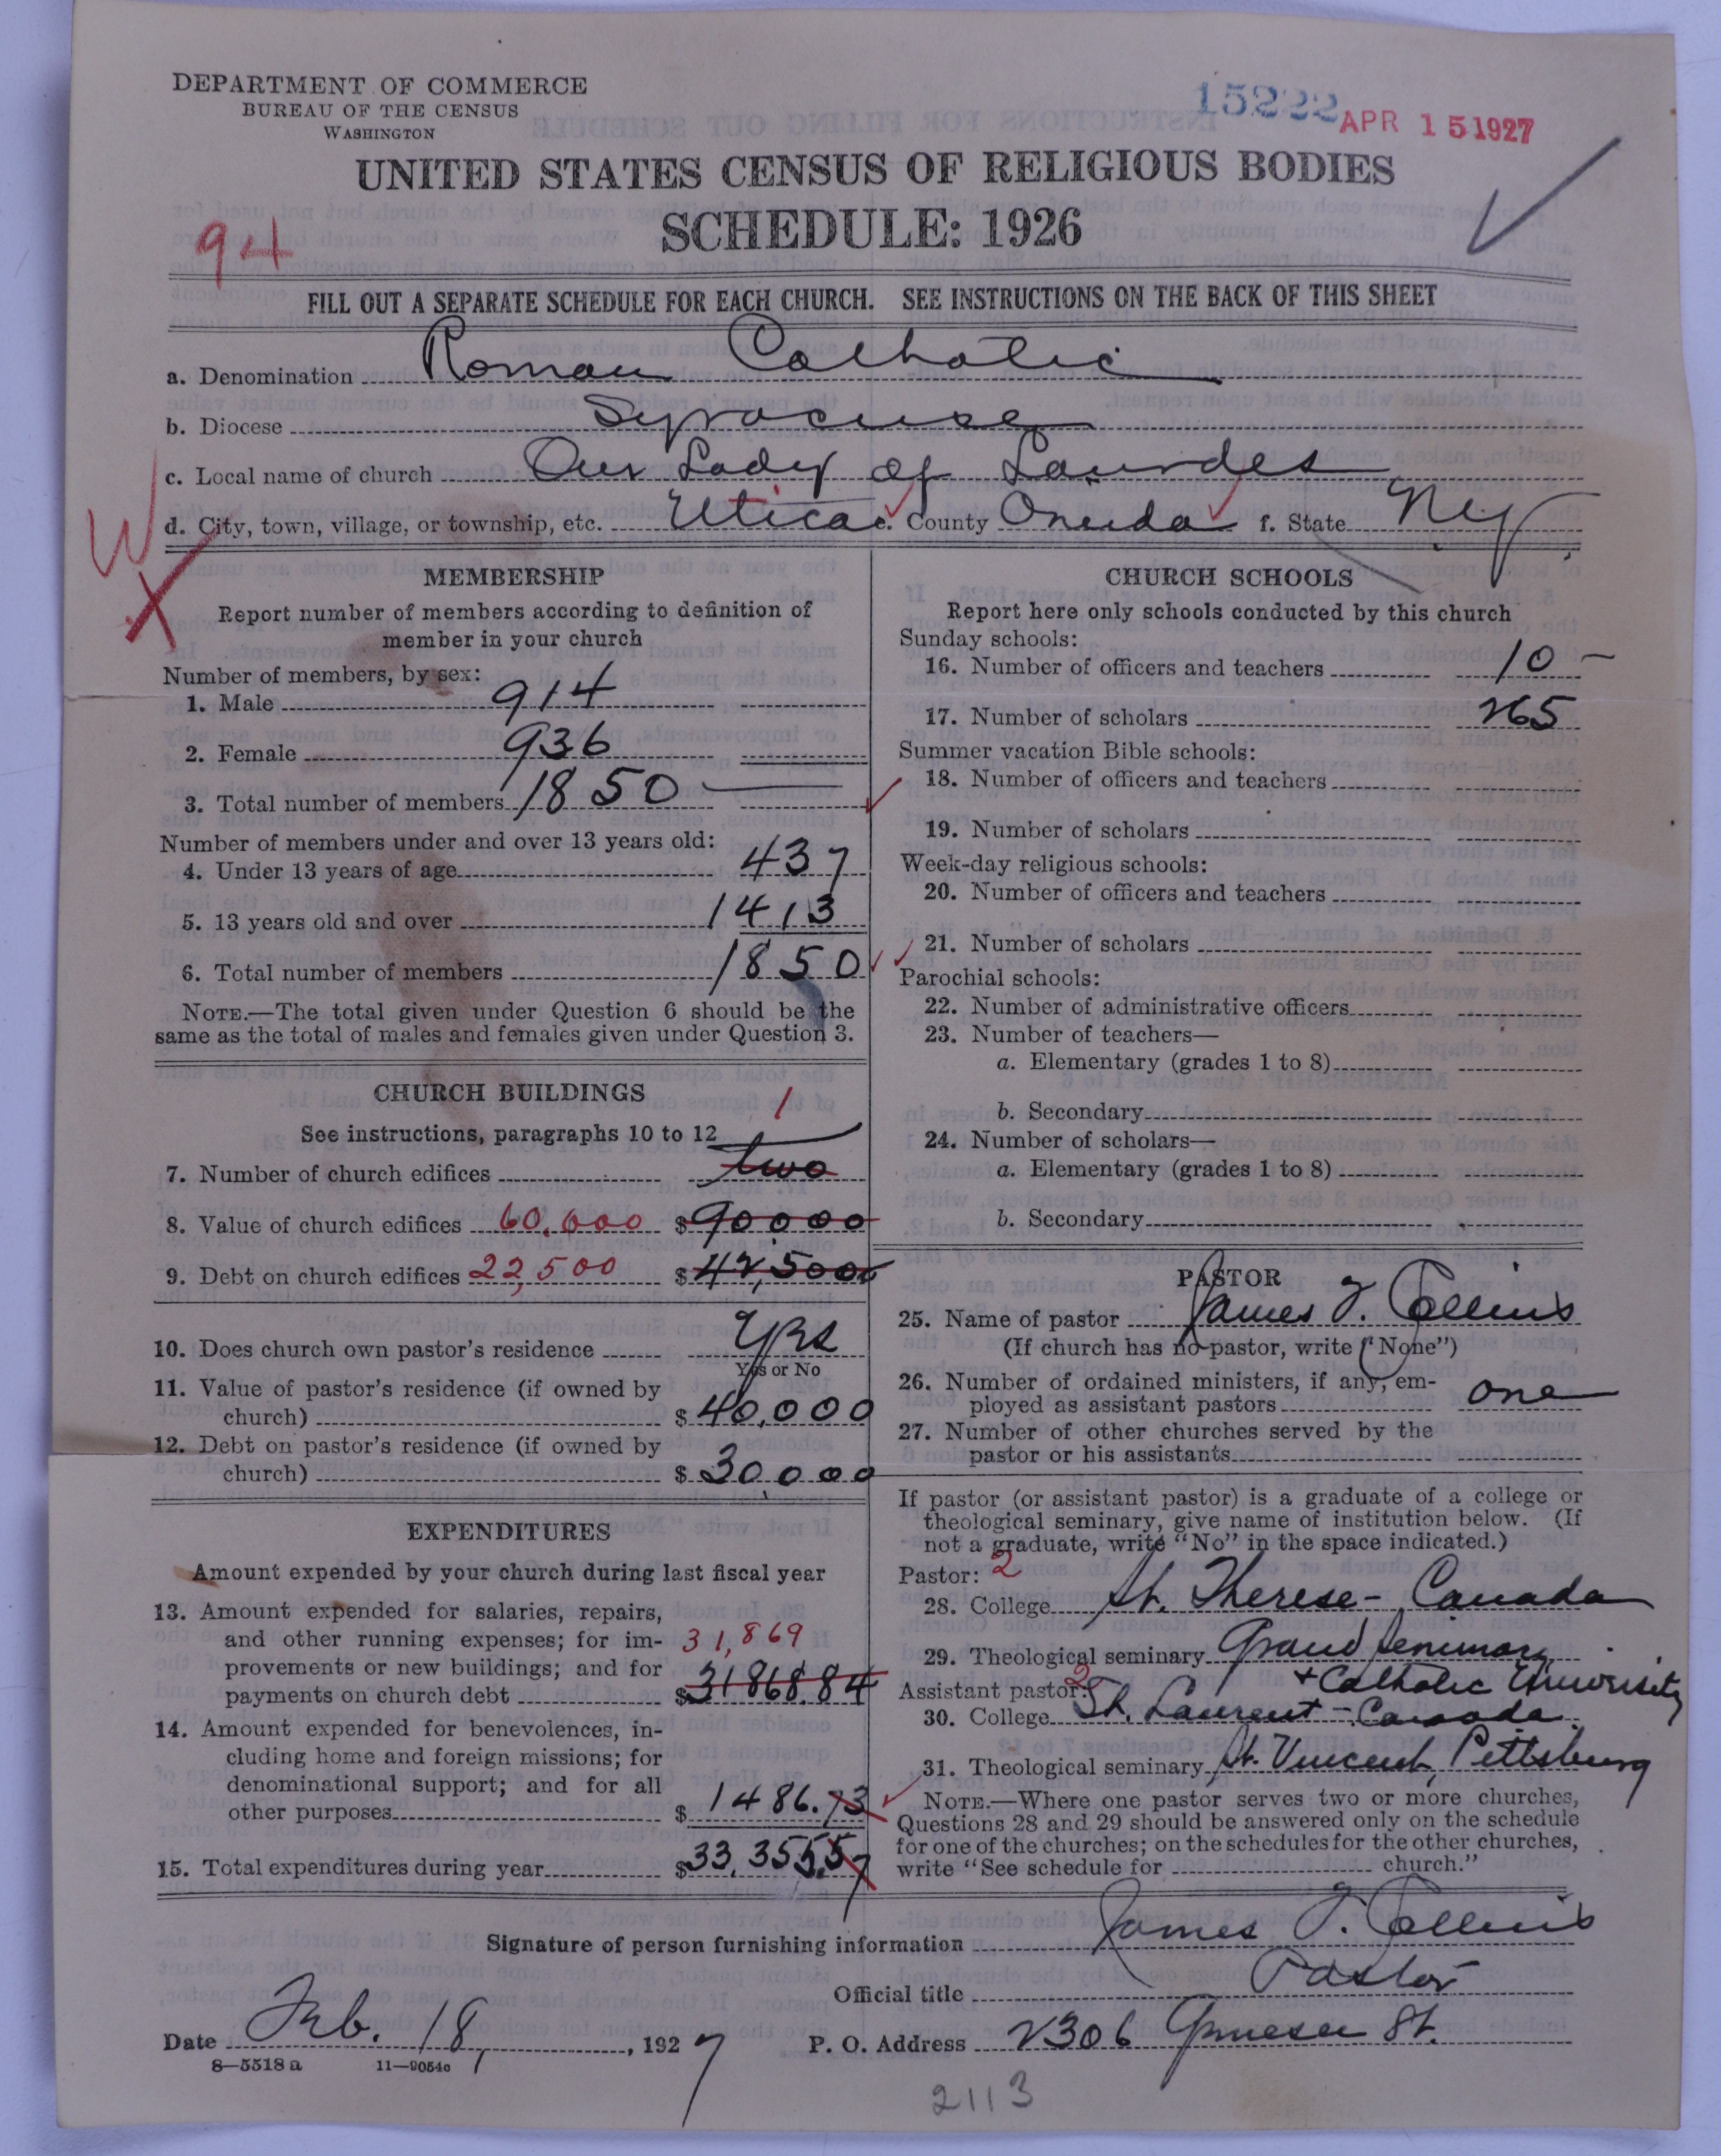 DEPARTMENT OF COMMERCE
BUREAU OF THE CENSUS
WASHINGTON
15222
APR 15 1927
UNITED STATES CENSUS OF RELIGIOUS BODIES
SCHEDULE: 1926
94
FILL OUT A SEPARATE SCHEDULE FOR EACH CHURCH. SEE INSTRUCTIONS ON THE BACK OF THIS SHEET
a. Denomination Roman Catholic
b. Diocese Syracuse
c. Local name of church Our Lady of Lourdes
d. City, town, village, or township, etc. Utica e. County Oneida f. State NY
W
X
MEMBERSHIP
Report number of members according to definition of
member in your church
Number of members, by sex:
1. Male 914
2. Female 936
3. Total number of members 1850
Number of members under and over 13 years old:
4. Under 13 years of age 437
5. 13 years old and over 1413
6. Total number of members 1850
NOTE.—The total given under Question 6 should be the
same as the total of males and females given under Question 3.
CHURCH BUILDINGS
See instructions, paragraphs 10 to 12
1
7. Number of church edifices two
8. Value of church edifices 60,000 $90,000
9. Debt on church edifices 22,500 $42,500
10. Does church own pastor's residence Yes
Yes or No
11. Value of pastor's residence (if owned by
church) $40,000
12. Debt on pastor's residence (if owned by
church) $30,000
EXPENDITURES
Amount expended by your church during last fiscal year
13. Amount expended for salaries, repairs,
and other running expenses; for im- 31,869
provements or new buildings; and for
payments on church debt $31868.84
14. Amount expended for benevolences, in-
cluding home and foreign missions; for
denominational support; and for all
other purposes $1486.73
15. Total expenditures during year $33,355.57
CHURCH SCHOOLS
Report here only schools conducted by this church
Sunday schools:
16. Number of officers and teachers 10
17. Number of scholars 265
Summer vacation Bible schools:
18. Number of officers and teachers
19. Number of scholars
Week-day religious schools:
20. Number of officers and teachers
21. Number of scholars
Parochial schools:
22. Number of administrative officers
23. Number of teachers—
a. Elementary (grades 1 to 8)
b. Secondary
24. Number of scholars—
a. Elementary (grades 1 to 8)
b. Secondary
PASTOR
25. Name of pastor James J. Collins
(If church has no pastor, write "None")
26. Number of ordained ministers, if any, em-
ployed as assistant pastors one
27. Number of other churches served by the
pastor or his assistants
If pastor (or assistant pastor) is a graduate of a college or
theological seminary, give name of institution below. (If
not a graduate, write "No" in the space indicated.)
Pastor: 2
28. College St. Therese - Canada
29. Theological seminary Grand Seminary
+ Catholic University
Assistant pastor: 2
30. College St. Laurent - Canada
31. Theological seminary St. Vincent, Pittsburg
NOTE.—Where one pastor serves two or more churches,
Questions 28 and 29 should be answered only on the schedule
for one of the churches; on the schedules for the other churches,
write "See schedule for church."
Signature of person furnishing information James J. Collins
Official title Pastor
Date Feb. 18, 1927 P. O. Address 2306 Genesee St.
8—5518 a 11—9054c
2113